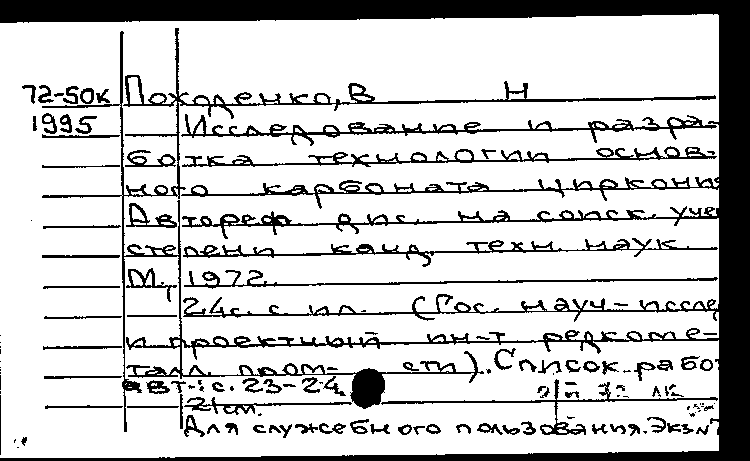 72-50к Походенко, В Н
1995 Исследование и разра-
ботка технологии основ-
ного карбоната циркония
Автореф дис. на соиск. учен
степени канд. техн. наук.
М., 1972.
24с. с ил. (Гос. науч-иссле
и проектный ин-т редкоме-
талл. пром- сти). Список работ
авт.: с. 23-24.
21см.
Для служебного пользования. Экз №